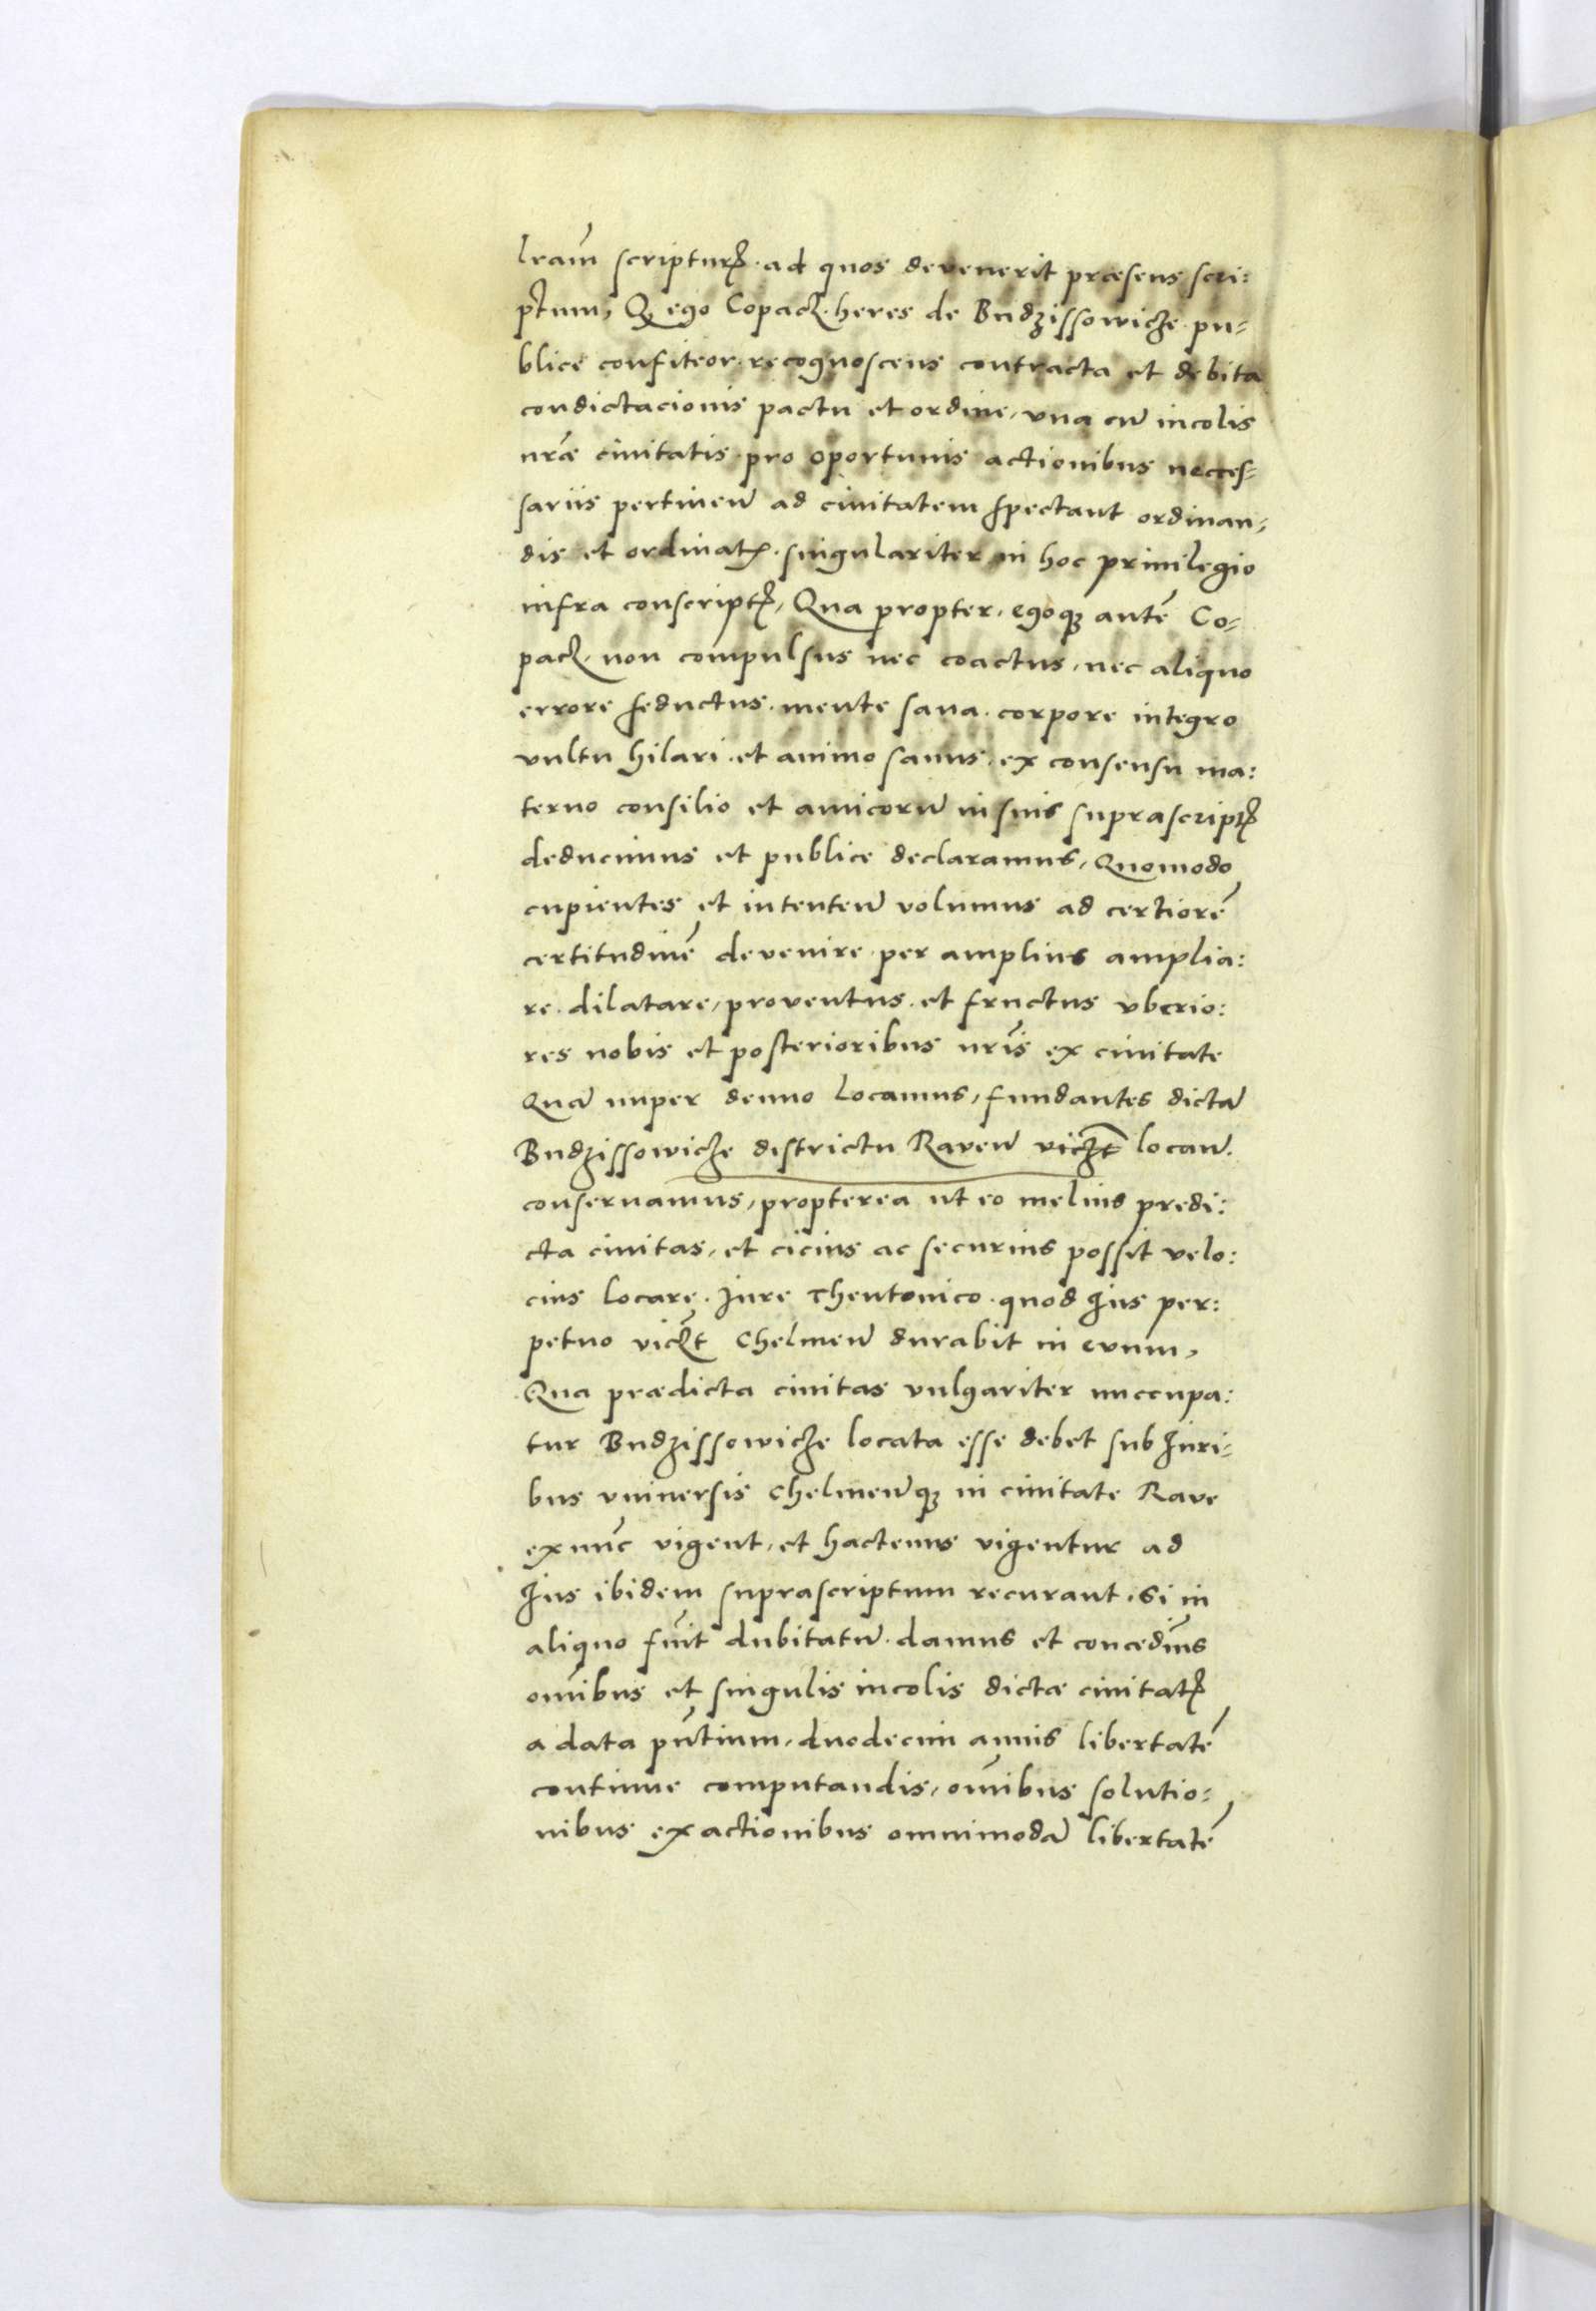 lrãm scripturꝭ. ad quos devenerit præsens scri:
ptum, Qͥ ego Copack. heres de Budzissowicze. pu-
blice confiteor. recognoscens contracta et debita
condictacionis pactu et ordine, una cũ incolis
nr̃æ civitatis. pro oportunis actionibus necces-
sariis pertineñ ad civitatem spectant ordinan-
dis et ordinatꝭ. singulariter in hoc privilegio
infra conscriptꝭ, Qua propter. egoqꝫ autẽ Co-
pack. non compulsus nec coactus, nec aliquo
errore seductus. mente sana. corpore integro
vultu hilari. et animo sanus. ex consensu ma:
terno consilio et amicorũ in suis suprascriptꝭ
deducimus et publice declaramus, Quomodo
cupientes et intenteñ volumus ad certiorẽ
certitudinẽ devenire. per amplius amplia:
re. dilatare, proventus. et fructus uberio:
res nobis et posterioribus nr̃is ex civitate
Quã nuper denuo locamus, fundantes dictã
Budzissowicze districtu Raveñ viczt̃ locañ.
conservamus, propterea ut eo melius predi:
cta civitas, et cicius ac securius possit velo:
cius locare. Jure Theutonico. quod Jus per:
petuo vick̃t Chelmeñ durabit in evum,
Qua prædicta civitas vulgariter nuccupa:
tur Budzissowicze locata esse debet sub Juri-
bus universis Chelmeñqꝫ in civitate Rave
ex nũc vigent, et hactenus vigentur ad
Jus ibidem suprascriptum recurant. Si in
aliquo fuĩt dubitatũ. damus et concedim̃s
om̃ibus et singulis incolis dictæ civitatꝭ
a data pñtium, duodecim annis libertatẽ
continue computandis, om̃ibus solutio:
nibus exactionibus omnimodã libertatẽ